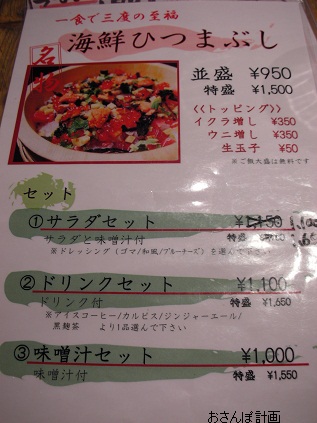 一食で三度の至福
名物
海鮮ひつまぶし
並盛 ¥950
特盛 ¥1,500
<<トッピング>>
イクラ増し ¥350
ウニ増し ¥350
生玉子 ¥50
※ご飯大盛は無料です
セット
①サラダセット
サラダと味噌汁付 特盛
※ドレッシング(ゴマ/和風/ブルーチーズ)を選んで下さい
②ドリンクセット ¥1,100
ドリンク付 特盛 ¥1,650
※アイスコーヒー/カルピス/ジンジャーエール/
黒麹茶 より1品選んで下さい
③味噌汁セット ¥1,000
味噌汁付 特盛 ¥1,550
おさんぽ計画